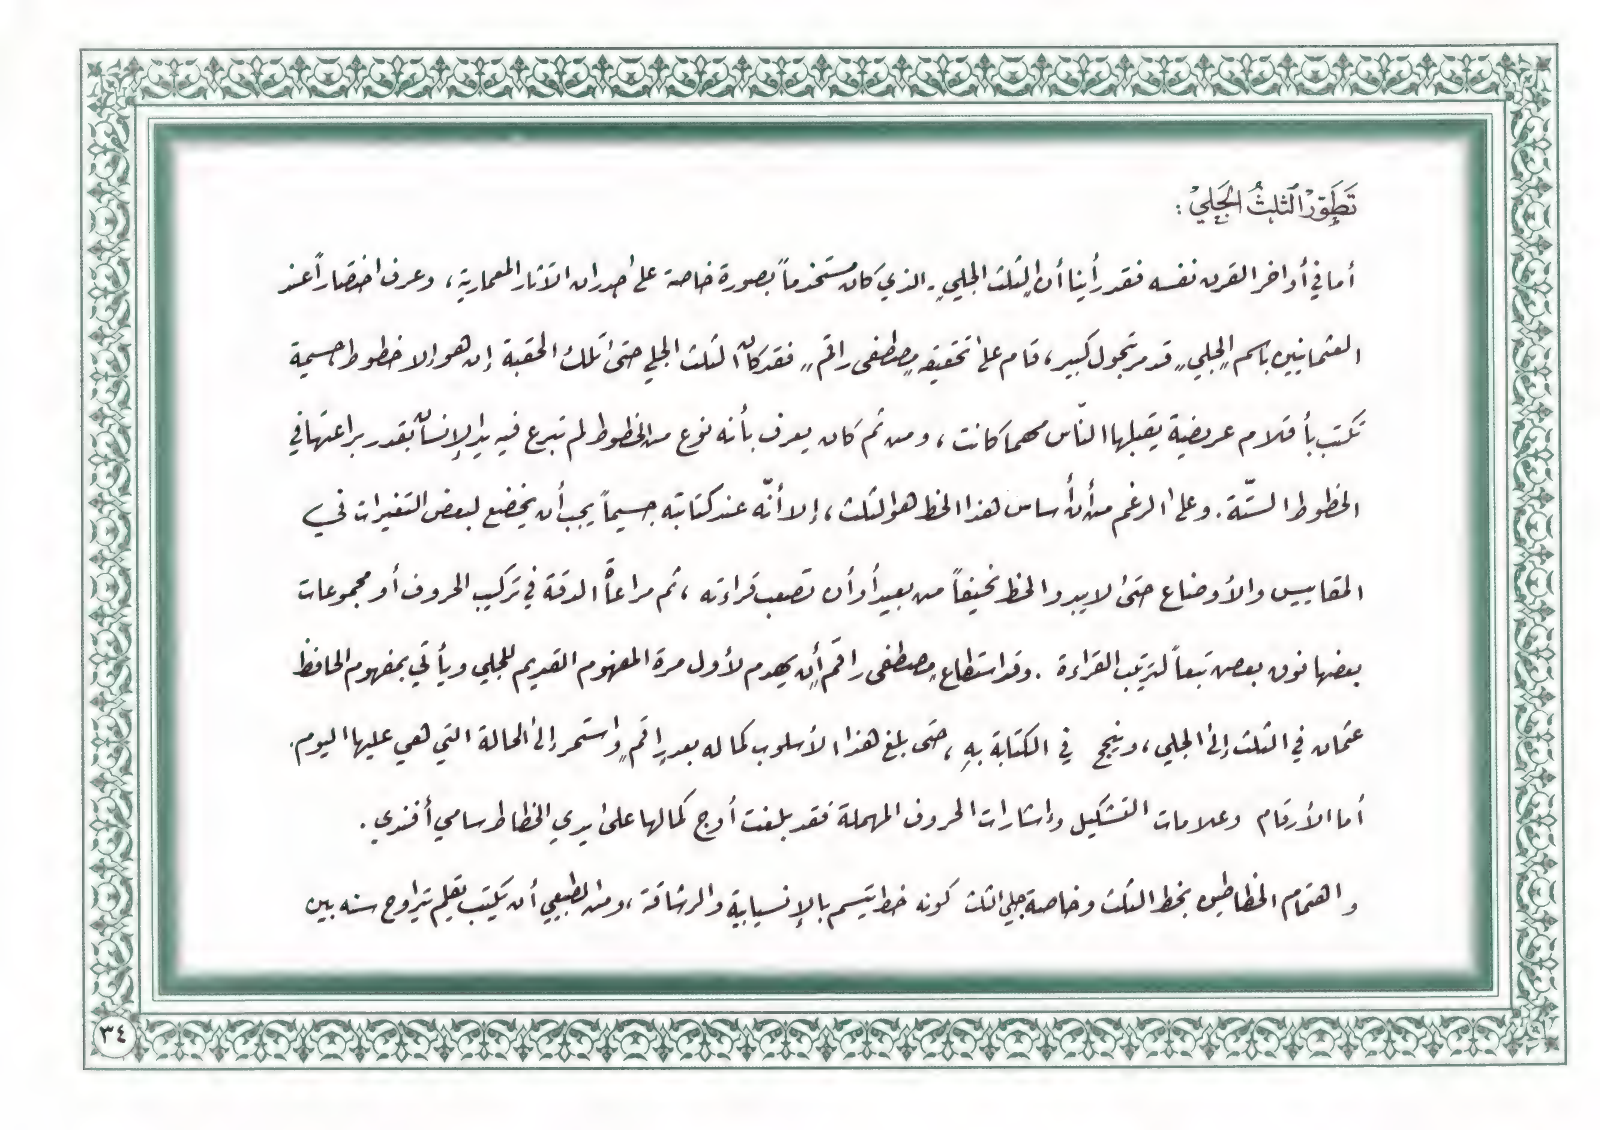 تَطَوّرْ الثلثُ الجَليْ :
أما في أواخر القرن نفسه فقد رأينا أن الثلث الجلي . الذي كان مستخدماً بصورة خاصة على جدران الآثار المعمارية ، وعرف اختصاراً عند
العثمانيين باسم الجلي قد مر بتحول كبير ، قام على تحقيقه مصطفى راقم ,, فقد كان الثلث الجلي حتى تلك الحقبة إن هو إلا خطوط جسيمة
تكتب بأقلام عريضة يقبلها النّاس مهما كانت ، ومن ثم كان يعرف بأنه نوع من الخطوط لم تبرع فيه يد الإنسان بقدر براعتها في
الخطوط الستّة . وعلى الرغم من أن أساس هذا الخط هو الثلث ، إلا أنّه عند كتابته جسيماً يجب أن يخضع لبعض التغيرات في
المقاييس والأوضاع حتى لا يبدو الخط نحيفاً من بعيد أو أن تصعب قراءته ، ثم مراعاة الدقة في تركيب الحروف أو مجموعات
بعضها فوق بعض تبعاً لترتيب القراءة . وقد استطاع مصطفى راقم أن يهدم لأول مرة المفهوم القديم للجلي ويأتي بمفهوم الحافظ
عثمان في الثلث إلى الجلي ، وينجح في الكتابة به ، حتى بلغ هذا الأسلوب كماله بعد راقم واستمر إلى الحالة التي هي عليها اليوم .
أما الأرقام وعلامات التشكيل وإشارات الحروف المهملة فقد بلغت أوج كمالها على يدي الخطاط سامي أفندي .
واهتمام الخطاطين بخط الثلث وخاصة جلي الثلث كونه خط يتسم بالإنسيابية والرشاقة ، ومن الطبيعي أن يكتب بقلم يتراوح سنه بين
٣٤